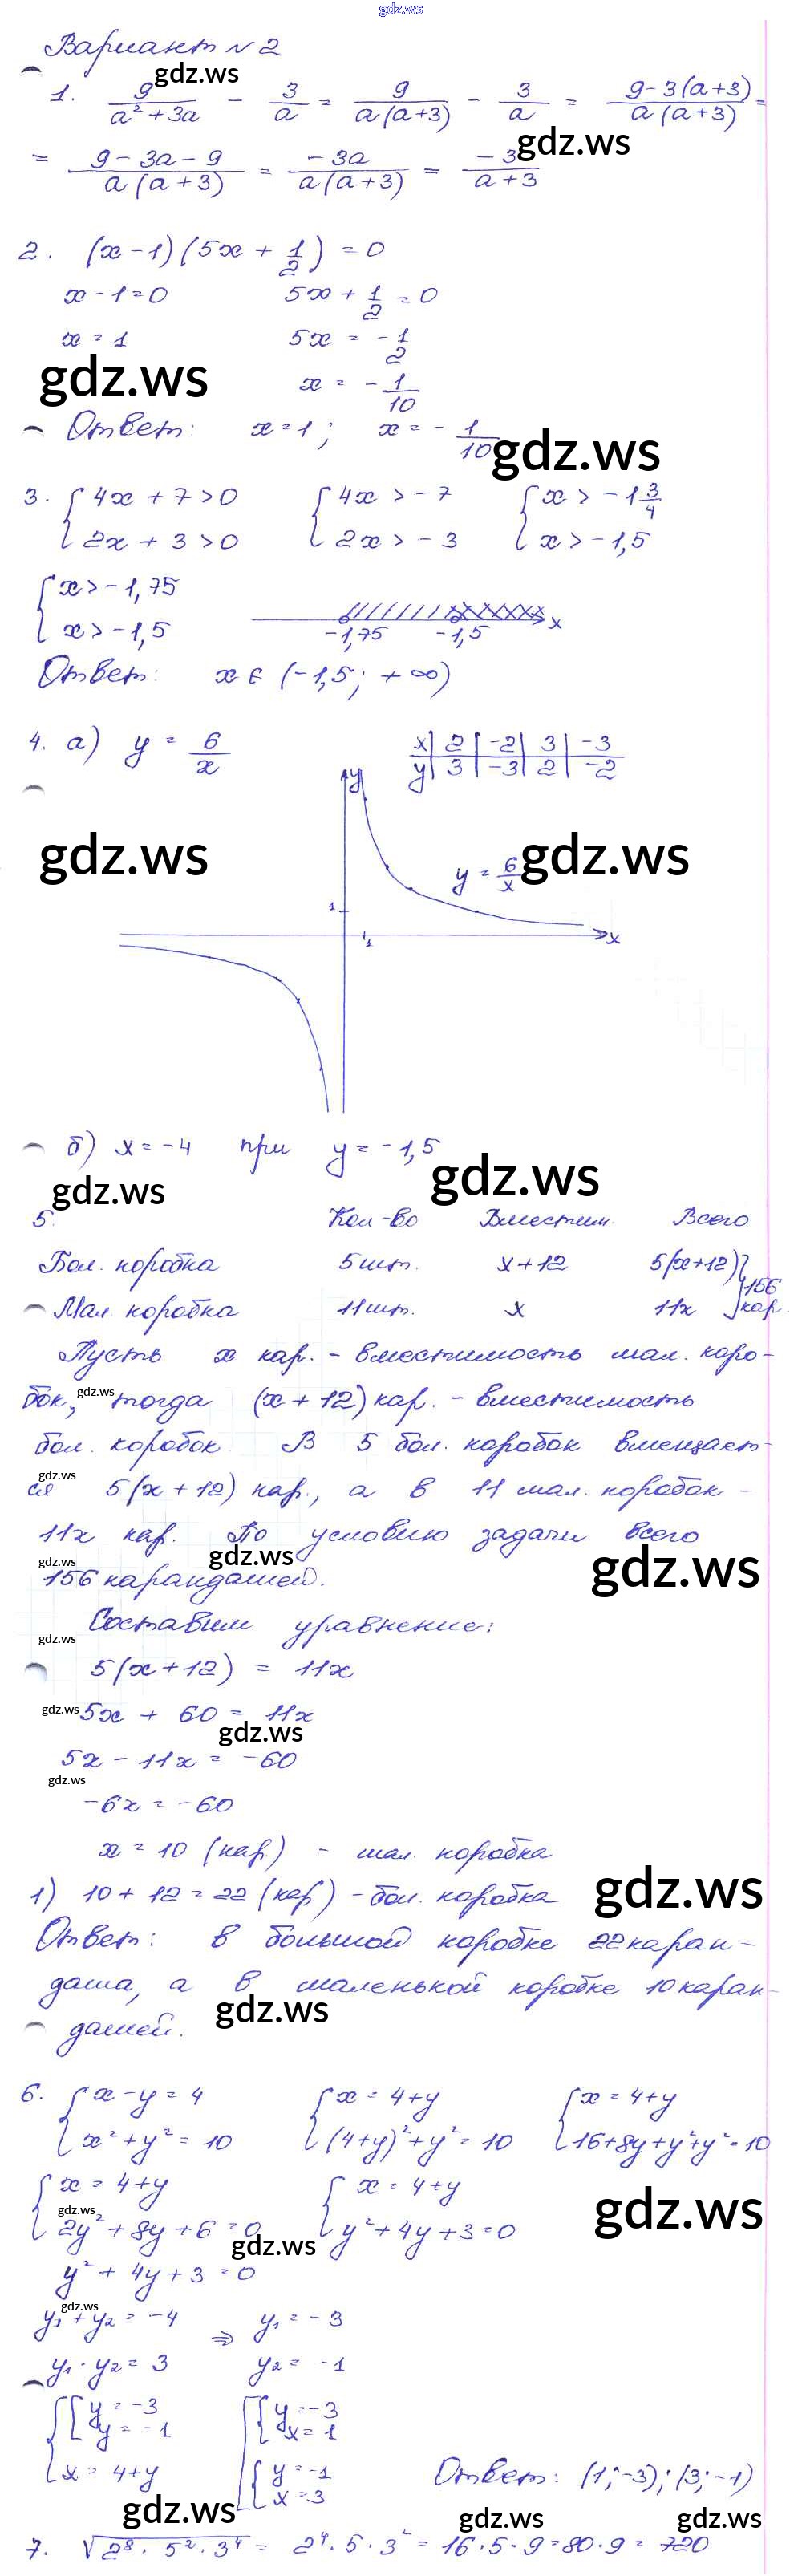 gdz.ws
Вариант №2
gdz.ws
1. 9/(a²+3a) - 3/a = 9/(a(a+3)) - 3/a = (9-3(a+3))/(a(a+3)) =
gdz.ws
= (9-3a-9)/(a(a+3)) = (-3a)/(a(a+3)) = (-3)/(a+3)
2. (x-1)(5x+1/2)=0
x-1=0 5x+1/2=0
x=1 5x = -1/2
gdz.ws x = -1/10
Ответ: x=1; x=-1/10 gdz.ws
3. {4x+7>0 {4x>-7 {x>-1 3/4
{2x+3>0 {2x>-3 {x>-1,5
{x>-1,75
{x>-1,5 -1,75 -1,5 x
Ответ: x∈(-1,5; +∞)
4. а) y = 6/x x | 2 | -2 | 3 | -3
y | 3 | -3 | 2 | -2
y
gdz.ws y = 6/x gdz.ws
1
1 x
б) x=-4 при y=-1,5
gdz.ws gdz.ws
5. Кол-во Вместим. Всего
Бол. коробка 5 шт. x+12 5(x+12) } 156
Мал. коробка 11 шт. x 11x } кар.
Пусть x кар. - вместимость мал. коро-
бок, gdz.ws тогда (x+12) кар. - вместимость
бол. коробок. В 5 бол. коробок вмещает-
gdz.ws
ся 5(x+12) кар., а в 11 мал. коробок -
11x кар. По условию задачи всего
gdz.ws gdz.ws gdz.ws
156 карандашей.
Составим уравнение:
gdz.ws
5(x+12) = 11x
gdz.ws 5x + 60 = 11x
gdz.ws
5x - 11x = -60
gdz.ws
-6x = -60
x = 10 (кар.) - мал. коробка
1) 10+12=22 (кар.) - бол. коробка gdz.ws
Ответ: в большой коробке 22 каран-
даша, а в маленькой коробке 10 каран-
gdz.ws
дашей.
6. {x-y=4 {x=4+y {x=4+y
{x²+y²=10 {(4+y)²+y²=10 {16+8y+y²+y²=10
{x=4+y {x=4+y
gdz.ws gdz.ws
{2y²+8y+6=0 {y²+4y+3=0
gdz.ws
y²+4y+3=0
gdz.ws
y₁+y₂=-4 ⇒ y₁=-3
y₁·y₂=3 y₂=-1
{[y=-3 [{y=-3
{[y=-1 [{x=1
{x=4+y [{y=-1 Ответ: (1;-3); (3;-1)
[{x=3
gdz.ws gdz.ws gdz.ws
7. √(2⁸·5²·3⁴) = 2⁴·5·3² = 16·5·9=80·9=720